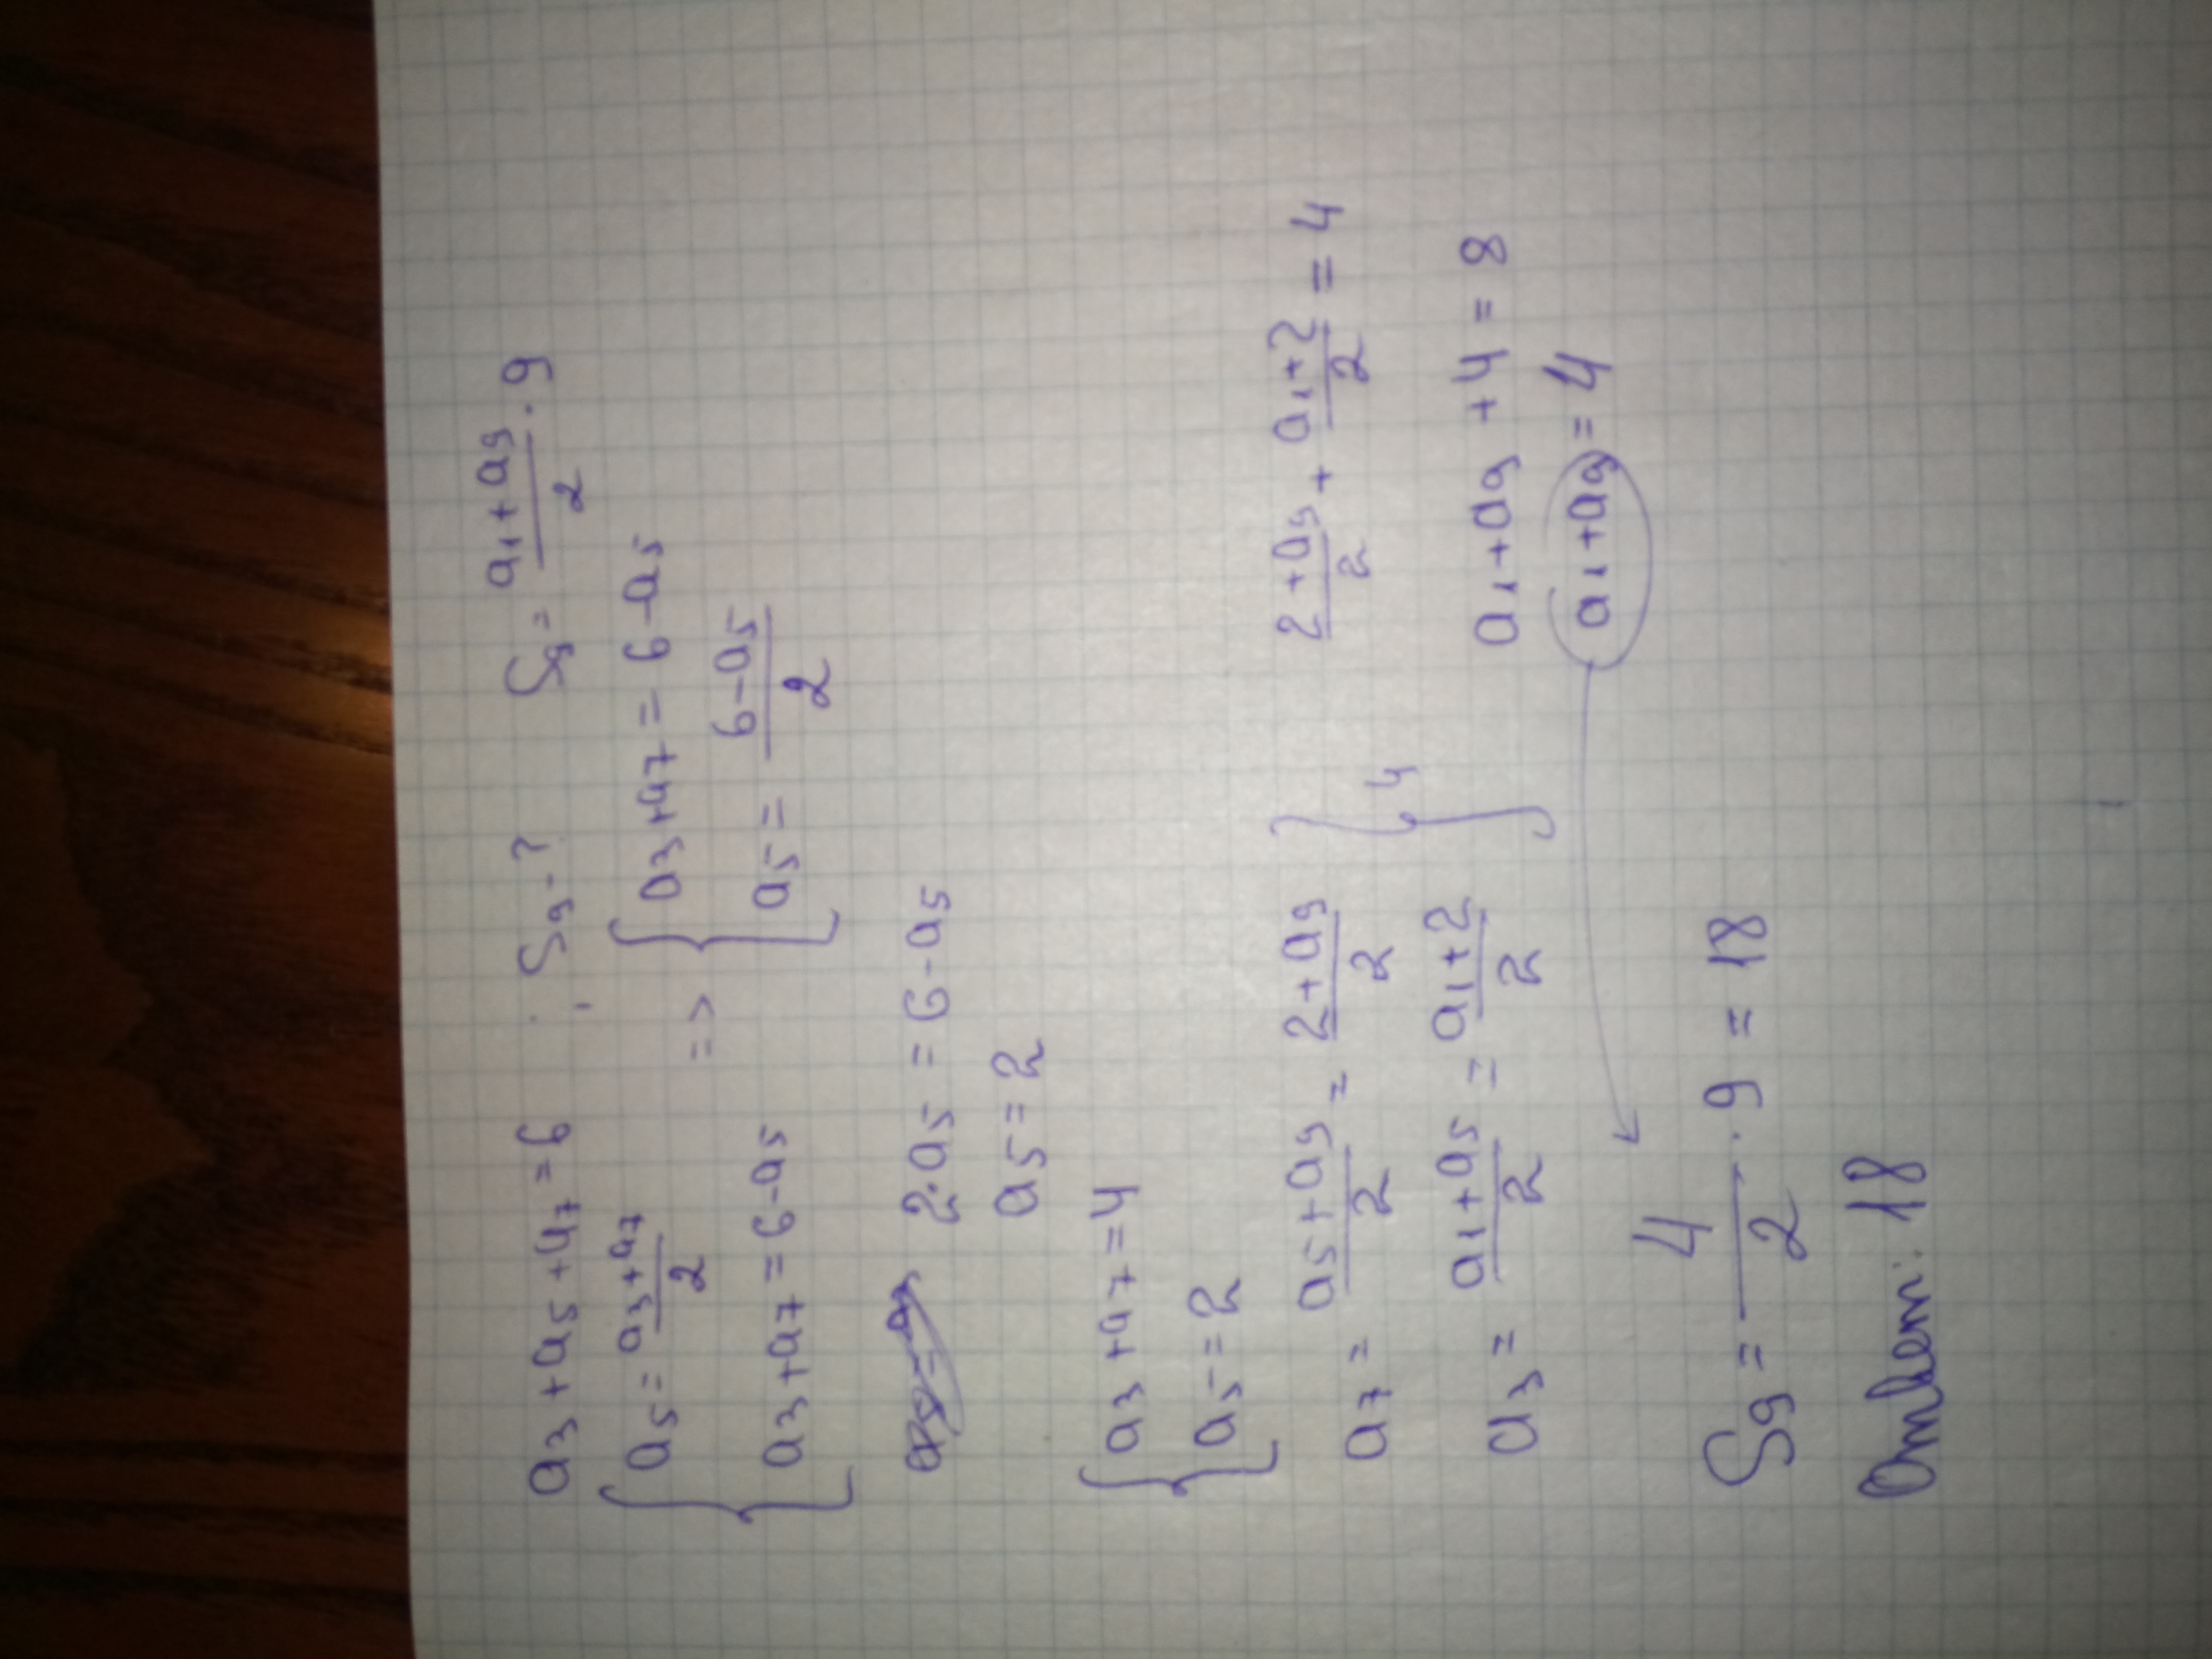 a₃ + a₅ + a₇ = 6 ; S₉ - ? S₉ = (a₁ + a₉)/2 · 9
{ a₅ = (a₃ + a₇)/2
a₃ + a₇ = 6 - a₅
=> { a₃ + a₇ = 6 - a₅
a₅ = (6 - a₅)/2
2 · a₅ = 6 - a₅
a₅ = 2
{ a₃ + a₇ = 4
a₅ = 2
a₇ = (a₅ + a₉)/2 = (2 + a₉)/2
a₃ = (a₁ + a₅)/2 = (a₁ + 2)/2
} 4
(2 + a₉)/2 + (a₁ + 2)/2 = 4
a₁ + a₉ + 4 = 8
a₁ + a₉ = 4
S₉ = 4/2 · 9 = 18
Ответ: 18